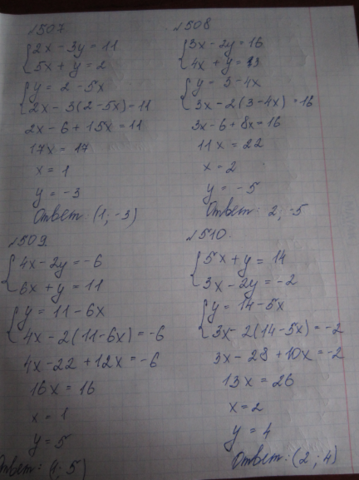 №507
{2x - 3y = 11
{5x + y = 2
{y = 2 - 5x
{2x - 3(2 - 5x) = 11
2x - 6 + 15x = 11
17x = 17
x = 1
y = -3
Ответ: (1; -3)
№508
{3x - 2y = 16
{4x + y = 13
{y = 3 - 4x
{3x - 2(3 - 4x) = 16
3x - 6 + 8x = 16
11x = 22
x = 2
y = -5
Ответ: 2; -5
№509
{4x - 2y = -6
{6x + y = 11
{y = 11 - 6x
{4x - 2(11 - 6x) = -6
4x - 22 + 12x = -6
16x = 16
x = 1
y = 5
Ответ: (1; 5)
№510.
{5x + y = 14
{3x - 2y = -2
{y = 14 - 5x
{3x - 2(14 - 5x) = -2
3x - 28 + 10x = -2
13x = 26
x = 2
y = 4
Ответ: (2; 4)